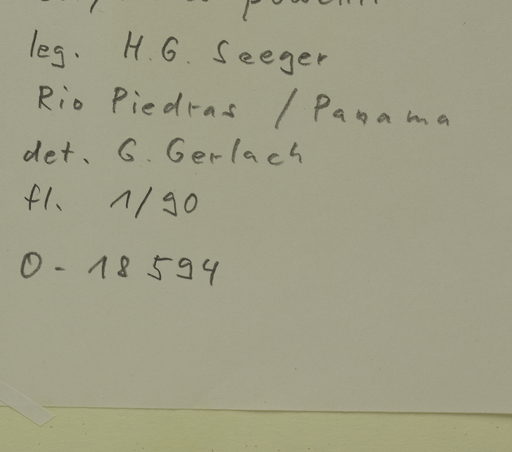 leg. H.G. Seeger
Rio Piedras / Panama
det. G. Gerlach
fl. 1/90
O-18594